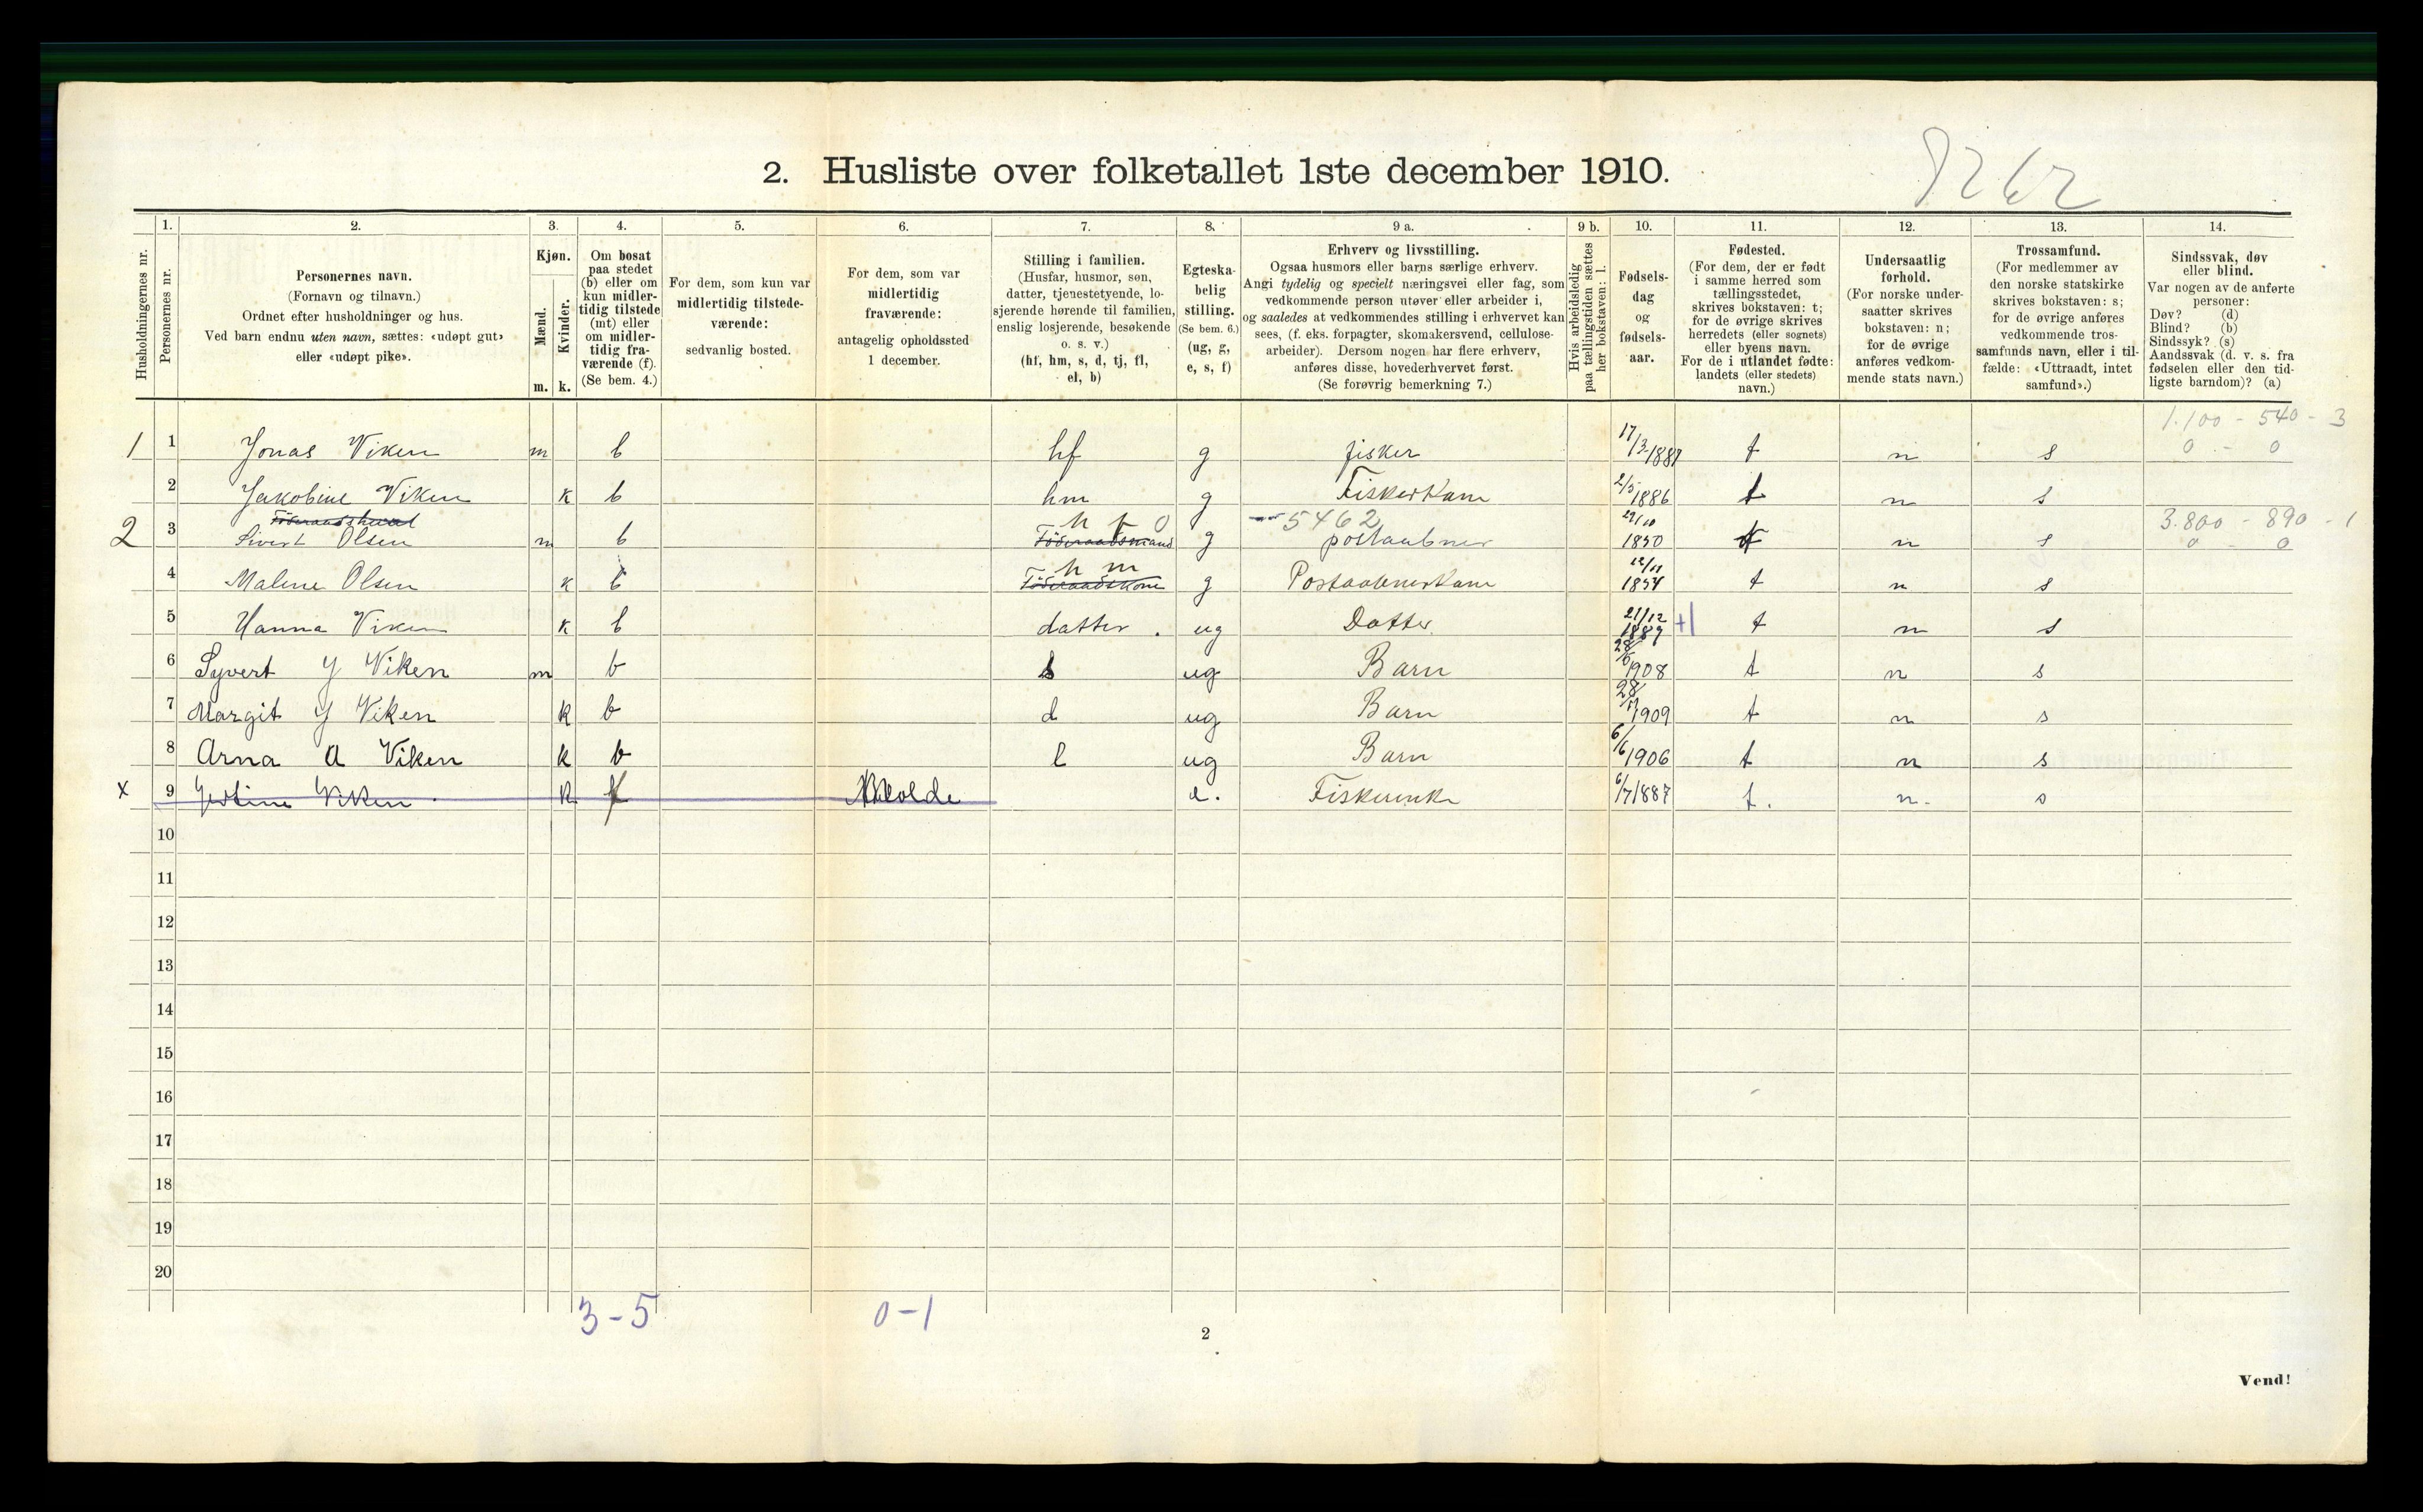 2. Husliste over folketallet 1ste december 1910.
8262
Husholdningernes nr.
1.
Personernes nr.
2.
Personernes navn.
(Fornavn og tilnavn.)
Ordnet efter husholdninger og hus.
Ved barn endnu uten navn, sættes: «udøpt gut»
eller «udøpt pike».
3.
Kjøn.
Mænd.
m.
Kvinder.
k.
4.
Om bosat
paa stedet
(b) eller om
kun midler-
tidig tilstede
(mt) eller
om midler-
tidig fra-
værende (f).
(Se bem. 4.)
5.
For dem, som kun var
midlertidig tilstede-
værende:
sedvanlig bosted.
6.
For dem, som var
midlertidig
fraværende:
antagelig opholdssted
1 december.
7.
Stilling i familien.
(Husfar, husmor, søn,
datter, tjenestetyende, lo-
sjerende hørende til familien,
enslig losjerende, besøkende
o. s. v.)
(hf, hm, s, d, tj, fl,
el, b)
8.
Egteska-
belig
stilling.
(Se bem. 6.)
(ug, g,
e, s, f)
9 a.
Erhverv og livsstilling.
Ogsaa husmors eller barns særlige erhverv.
Angi tydelig og specielt næringsvei eller fag, som
vedkommende person utøver eller arbeider i,
og saaledes at vedkommendes stilling i erhvervet kan
sees, (f. eks. forpagter, skomakersvend, cellulose-
arbeider). Dersom nogen har flere erhverv,
anføres disse, hovederhvervet først.
(Se forøvrig bemerkning 7.)
9 b.
Hvis arbeidsledig
paa tællingstiden sættes
her bokstaven: l.
10.
Fødsels-
dag
og
fødsels-
aar.
11.
Fødested.
(For dem, der er født
i samme herred som
tællingsstedet,
skrives bokstaven: t;
for de øvrige skrives
herredets (eller sognets)
eller byens navn.
For de i utlandet fødte:
landets (eller stedets)
navn.)
12.
Undersaatlig
forhold.
(For norske under-
saatter skrives
bokstaven: n;
for de øvrige
anføres vedkom-
mende stats navn.)
13.
Trossamfund.
(For medlemmer av
den norske statskirke
skrives bokstaven: s;
for de øvrige anføres
vedkommende tros-
samfunds navn, eller i til-
fælde: «Uttraadt, intet
samfund».)
14.
Sindssvak, døv
eller blind.
Var nogen av de anførte
personer:
Døv? (d)
Blind? (b)
Sindssyk? (s)
Aandssvak (d. v. s. fra
fødselen eller den tid-
ligste barndom)? (a)
1.100 - 540 - 3
1 1 Jonas Viken m b hf g fisker 17/3 1887 t n s 0 - 0
2 Jakobine Viken k b hm g Fiskerkone 2/5 1886 t n s
Föderaadskaarl h f 0 5462 3.800 - 890 - 1
2 3 Sivert Olsen m b Föderaadsmand g postaabner 29/10 1850 t n s 0 - 0
h m
4 Malene Olsen k b Föderaadskone g Postaabnerkone 12/11 1854 t n s
5 Hanna Viken k b datter. ug Datter 21/12 1889 +1 t n s
6 Syvert J Viken m b s ug Barn 28/6 1908 t n s
7 Margit J Viken k b d ug Barn 28/11 1909 t n s
8 Arna A Viken k b l ug Barn 6/6 1906 t n s
x 9 Jestine Viken k f Molde e. Fiskerenke 6/7 1887 t. n. s
10
11
12
13
14
15
16
17
18
19
20
3-5 0-1
2
Vend!